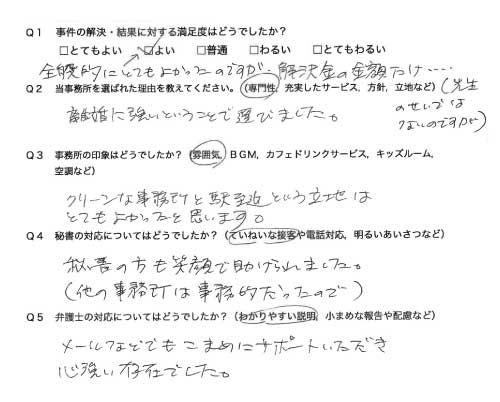 Q1 事件の解決・結果に対する満足度はどうでしたか？
□とてもよい ☑よい □普通 □わるい □とてもわるい
全般的にとてもよかったのですが、解決金の金額だけ……
Q2 当事務所を選ばれた理由を教えてください。（専門性、充実したサービス、方針、立地など）
（先生のせいではないのですが）
離婚に強いということで選びました。
Q3 事務所の印象はどうでしたか？（雰囲気、ＢＧＭ、カフェドリンクサービス、キッズルーム、
空調など）
クリーンな事務所と駅至近という立地は
とてもよかったと思います。
Q4 秘書の対応についてはどうでしたか？（ていねいな接客や電話対応、明るいあいさつなど）
秘書の方も笑顔で助けられました。
（他の事務所は事務的だったので）
Q5 弁護士の対応についてはどうでしたか？（わかりやすい説明、小まめな報告や配慮など）
メールなどでもこまめにサポートいただき
心強い存在でした。